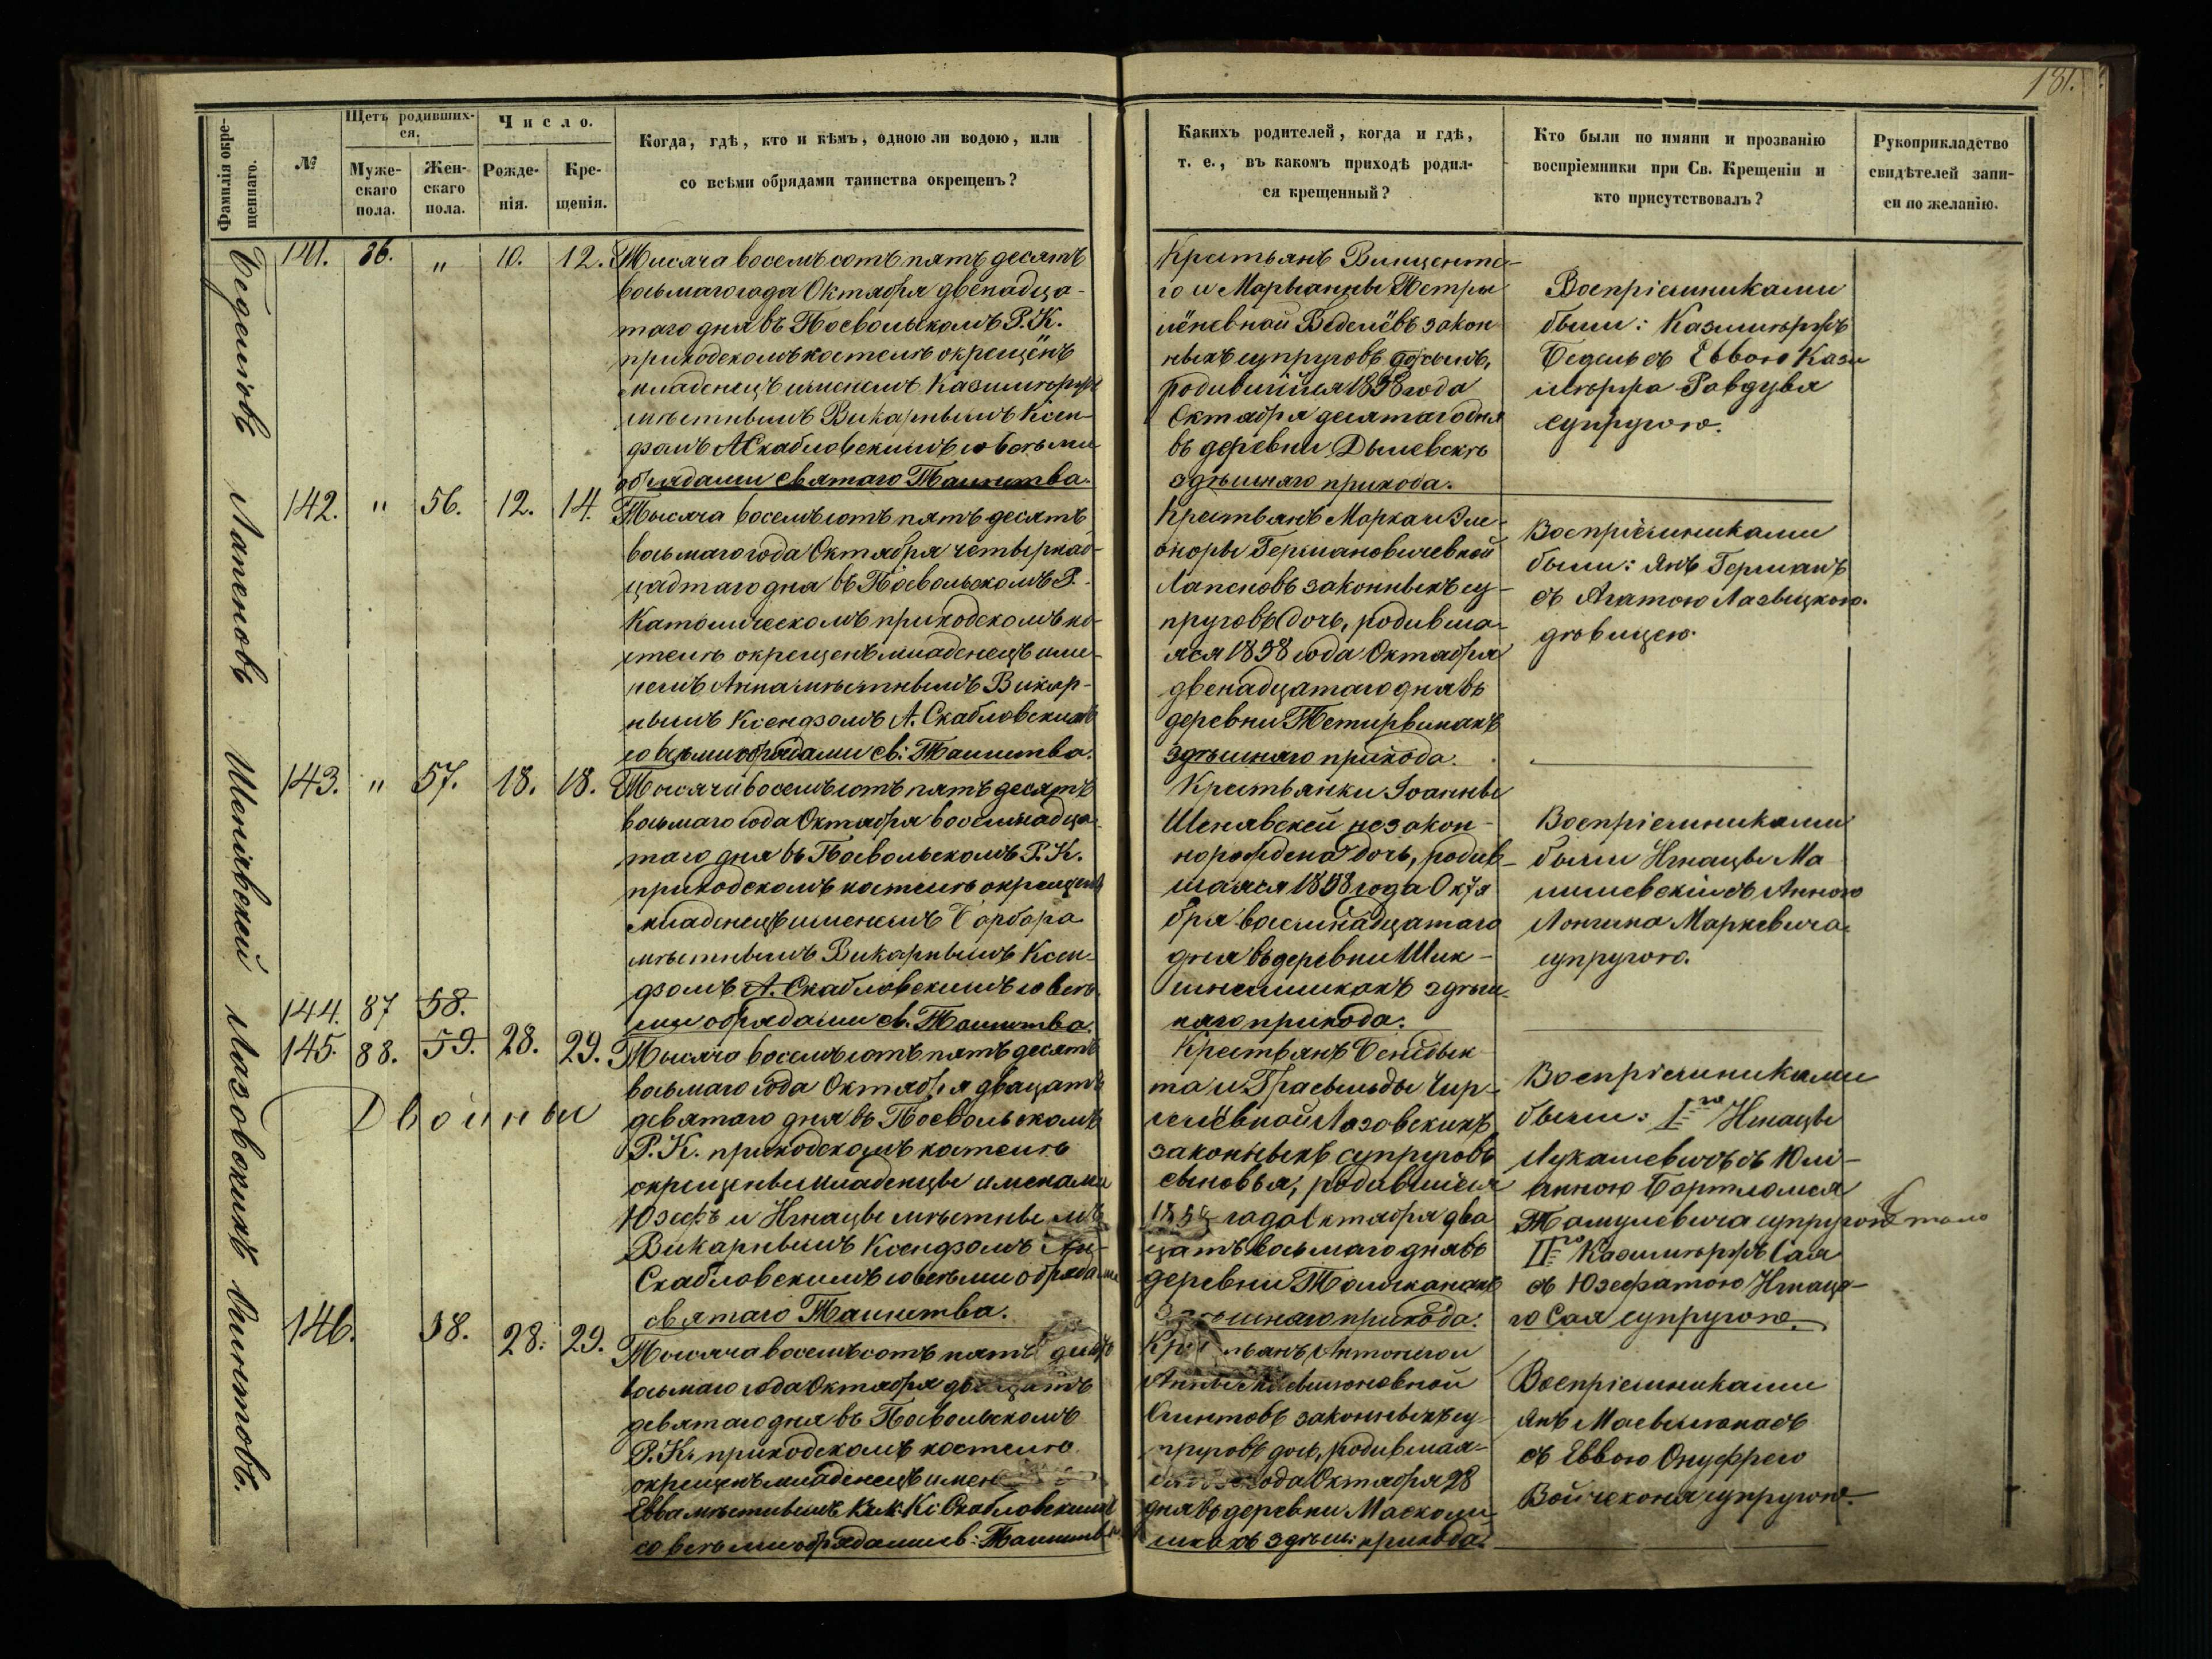 181.
Фамилія окре-
щеннаго.
№
Щетъ родивших-
ся.
Муже-
скаго
пола.
Жен-
скаго
пола.
Число.
Рожде-
нія.
Кре-
щенія.
Когда, гдѣ, кто и кѣмъ, одною ли водою, или
со всѣми обрядами таинства окрещенъ?
Какихъ родителей, когда и гдѣ,
т. е., въ какомъ приходѣ родил-
ся крещенный?
Кто были по имяни и прозванію
воспріемники при Св. Крещеніи и
кто присутствовалъ?
Рукоприкладство
свидѣтелей запи-
си по желанію.
141. 86. " 10. 12.
Тысяча восемъ сотъ пятъ десятъ
восьмаго года Октября двенадца-
таго дня въ Посвольскомъ Р. К.
приходскомъ костелѣ окрещёнъ
младенецъ именемъ Казимѣржъ
мѣстнымъ Викарнымъ Ксен-
дзомъ А Скабловскимъ со всѣми
обрядами святаго Таинства.
Крестьянъ Винценте-
го и Марыанны Петры
лёневной Беделёвъ закон
ныхъ супруговъ сынъ,
родившійся 1858 года
Октября десятаго дня
въ деревни
здѣшняго прихода.
Воспріемниками
были: Казимѣржъ
Бедель съ Еввою Кази
мѣржа Равдувя
супругою.
Беделювъ
142. " 56. 12. 14.
Тысяча восемъ сотъ пятъ десятъ
восьмаго года Октября четырнад-
цадтаго дня въ Посвольскомъ Р.
Католическомъ приходскомъ ко-
стелѣ окрещенъ младенецъ име-
немъ Анна мѣстнымъ Викар-
нымъ Ксендзомъ А. Скабловскимъ
со всѣми обрядами св: Таинства.
Крестьянъ Марка и Эле-
оноры Германовичевной
Лапеновъ законныхъ су-
пруговъ дочь, родивша-
яся 1858 года Октября
двенадцатаго дня въ
деревни Тетирвинахъ
здѣшняго прихода.
Воспріемниками
были: Янъ Германъ
съ Агатою
дѣвицею.
Лапеновъ
143. " 57. 18. 18.
Тысяча восемъ сотъ пятъ десятъ
восьмаго года Октября восемнадца-
таго дня въ Посвольскомъ Р. К.
приходскомъ костелѣ окрещенъ
младенецъ именемъ Барбара
мѣстнымъ Викарнымъ Ксен-
дзомъ А. Скабловскимъ со всѣ-
ми обрядами св. Таинства.
Крестьянки Іоанны
Шенявской незакон-
норождена дочь, родив-
шаяся 1858 года Октя
бря восемнадцатаго
дня въ деревни
здѣш-
няго прихода.
Воспріемниками
были Игнацы Ма
съ Анною
Лонгина Маркевича
супругою.
Шенявской
144. 87 58.
145. 88. 59. 28. 29.
Двойни
Тысяча восемъ сотъ пятъ десятъ
восьмаго года Октября двацать
девятаго дня въ Посвольскомъ
Р. К. приходскомъ костелѣ
окрещены младенцы именами
Юзефъ и Игнацы мѣстнымъ
Викарнымъ Ксендзомъ
Скабловскимъ со всѣми обрядами
святаго Таинства.
Крестьянъ Бенедык
та и
Лазовскихъ
законныхъ супруговъ
сыновья, родившіеся
1858 года Октября два
цать восьмаго дня въ
деревни
здѣшняго прихода.
Воспріемниками
были: I го Игнацы
Лукашевичъ съ Юлі-
анною Бартломея
Тамулевича супругою
II го Казимѣржъ Сая
съ Юзефатою Игнаце-
го Сая супругою.
Лазовскихъ
146. 58. 28. 29.
Тысяча восемъ сотъ пятъ десятъ
восьмаго года Октября двацать
девятаго дня въ Посвольскомъ
Р. К. приходскомъ костелѣ
окрещенъ младенецъ имен
Евва мѣстнымъ Вик. Кс. Скабловскимъ
со всѣми обрядами св: Таинства
Крестьянъ Антонего и
Анны
законныхъ су-
пруговъ дочь, родившая-
года Октября 28
дня въ деревни
здѣш: прихода.
Воспріемниками
Янъ
съ Еввою Онуфрего
супругою.